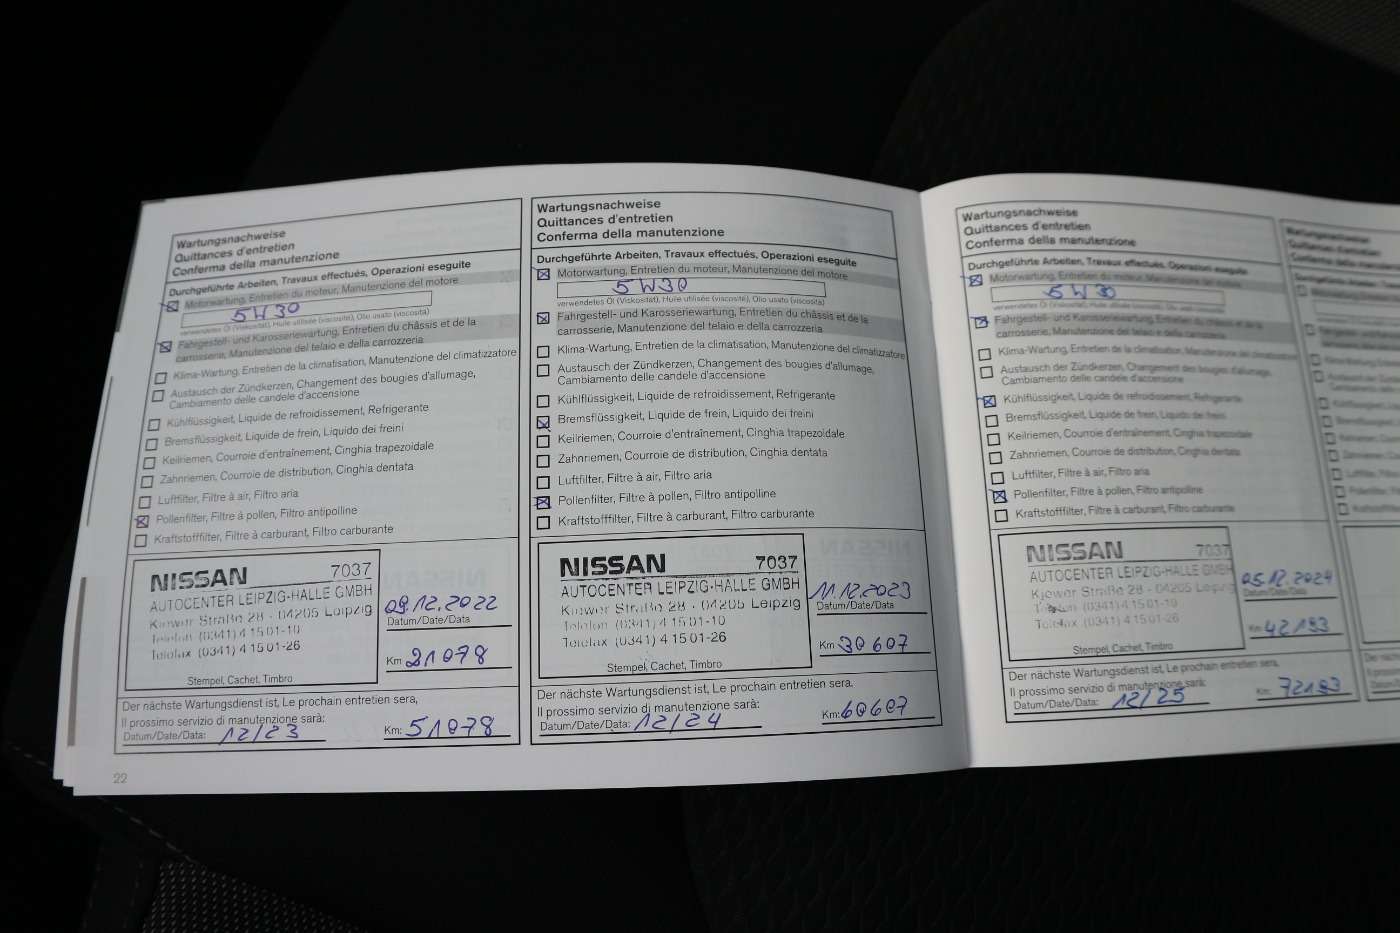 Wartungsnachweise
Quittances d'entretien
Conferma della manutenzione
Durchgeführte Arbeiten, Travaux effectués, Operazioni eseguite
Motorwartung, Entretien du moteur, Manutenzione del motore
5W30
verwendetes Öl (Viskosität), Huile utilisée (viscosité), Olio usato (viscosità)
Fahrgestell- und Karosseriewartung, Entretien du châssis et de la
carrosserie, Manutenzione del telaio e della carrozzeria
Klima-Wartung, Entretien de la climatisation, Manutenzione del climatizzatore
Austausch der Zündkerzen, Changement des bougies d'allumage,
Cambiamento delle candele d'accensione
Kühlflüssigkeit, Liquide de refroidissement, Refrigerante
Bremsflüssigkeit, Liquide de frein, Liquido dei freini
Keilriemen, Courroie d'entraînement, Cinghia trapezoidale
Zahnriemen, Courroie de distribution, Cinghia dentata
Luftfilter, Filtre à air, Filtro aria
Pollenfilter, Filtre à pollen, Filtro antipolline
Kraftstofffilter, Filtre à carburant, Filtro carburante
NISSAN 7037
AUTOCENTER LEIPZIG-HALLE GMBH
Kiewer Straße 28 - 04205 Leipzig
Telefon (0341) 4 15 01-10
Telefax (0341) 4 15 01-26
Stempel, Cachet, Timbro
09.12.2022
Datum/Date/Data
Km 21078
Der nächste Wartungsdienst ist, Le prochain entretien sera,
Il prossimo servizio di manutenzione sarà:
Datum/Date/Data: 12/23 Km: 51078
22
Wartungsnachweise
Quittances d'entretien
Conferma della manutenzione
Durchgeführte Arbeiten, Travaux effectués, Operazioni eseguite
Motorwartung, Entretien du moteur, Manutenzione del motore
5W30
verwendetes Öl (Viskosität), Huile utilisée (viscosité), Olio usato (viscosità)
Fahrgestell- und Karosseriewartung, Entretien du châssis et de la
carrosserie, Manutenzione del telaio e della carrozzeria
Klima-Wartung, Entretien de la climatisation, Manutenzione del climatizzatore
Austausch der Zündkerzen, Changement des bougies d'allumage,
Cambiamento delle candele d'accensione
Kühlflüssigkeit, Liquide de refroidissement, Refrigerante
Bremsflüssigkeit, Liquide de frein, Liquido dei freini
Keilriemen, Courroie d'entraînement, Cinghia trapezoidale
Zahnriemen, Courroie de distribution, Cinghia dentata
Luftfilter, Filtre à air, Filtro aria
Pollenfilter, Filtre à pollen, Filtro antipolline
Kraftstofffilter, Filtre à carburant, Filtro carburante
NISSAN 7037
AUTOCENTER LEIPZIG-HALLE GMBH
Kiewer Straße 28 - 04205 Leipzig
Telefon (0341) 4 15 01-10
Telefax (0341) 4 15 01-26
Stempel, Cachet, Timbro
11.12.2023
Datum/Date/Data
Km 30607
Der nächste Wartungsdienst ist, Le prochain entretien sera,
Il prossimo servizio di manutenzione sarà:
Datum/Date/Data: 12/24 Km: 60607
Wartungsnachweise
Quittances d'entretien
Conferma della manutenzione
Durchgeführte Arbeiten, Travaux effectués, Operazioni eseguite
Motorwartung, Entretien du moteur, Manutenzione del motore
5W30
verwendetes Öl (Viskosität), Huile utilisée (viscosité), Olio usato (viscosità)
Fahrgestell- und Karosseriewartung, Entretien du châssis et de la
carrosserie, Manutenzione del telaio e della carrozzeria
Klima-Wartung, Entretien de la climatisation, Manutenzione del climatizzatore
Austausch der Zündkerzen, Changement des bougies d'allumage,
Cambiamento delle candele d'accensione
Kühlflüssigkeit, Liquide de refroidissement, Refrigerante
Bremsflüssigkeit, Liquide de frein, Liquido dei freini
Keilriemen, Courroie d'entraînement, Cinghia trapezoidale
Zahnriemen, Courroie de distribution, Cinghia dentata
Luftfilter, Filtre à air, Filtro aria
Pollenfilter, Filtre à pollen, Filtro antipolline
Kraftstofffilter, Filtre à carburant, Filtro carburante
NISSAN 7037
AUTOCENTER LEIPZIG-HALLE GMBH
Kiewer Straße 28 - 04205 Leipzig
Telefon (0341) 4 15 01-10
Telefax (0341) 4 15 01-26
Stempel, Cachet, Timbro
05.12.2024
Datum/Date/Data
Km 42193
Der nächste Wartungsdienst ist, Le prochain entretien sera,
Il prossimo servizio di manutenzione sarà:
Datum/Date/Data: 12/25 Km: 72193
Wartungsnachweise